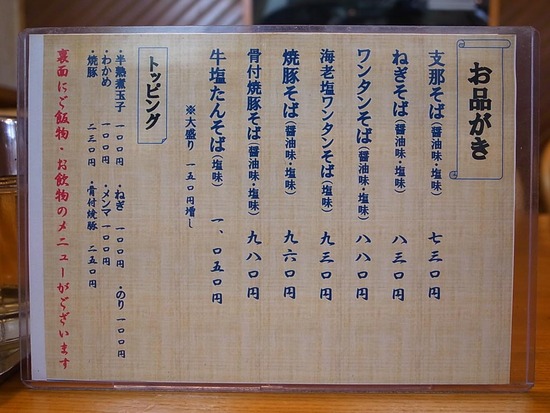 お品がき
支那そば（醤油味・塩味）　七三〇円
ねぎそば（醤油味・塩味）　八三〇円
ワンタンそば（醤油味・塩味）　八八〇円
海老塩ワンタンそば（塩味）　九三〇円
焼豚そば（醤油味・塩味）　九六〇円
骨付焼豚そば（醤油味・塩味）　九八〇円
牛塩たんそば（塩味）　一、〇五〇円
※大盛り　一五〇円増し
トッピング
・半熟煮玉子　一〇〇円　・ねぎ　一〇〇円　・のり　一〇〇円
・わかめ　一〇〇円　・メンマ　一〇〇円
・焼豚　二三〇円　・骨付焼豚　二五〇円
裏面にご飯物・お飲物のメニューがございます